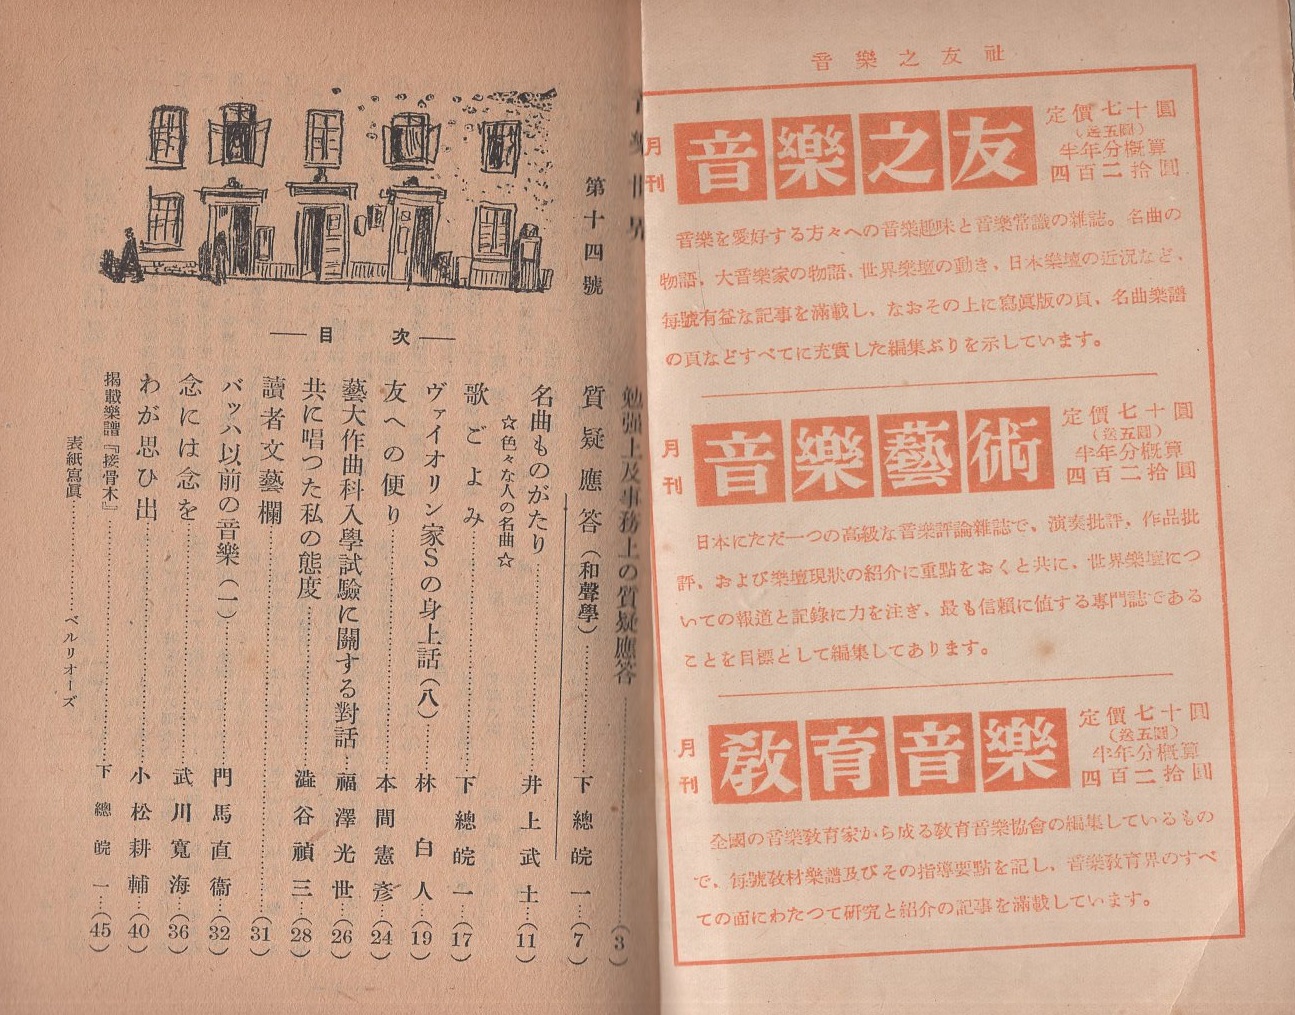 音樂之友社
月刊
音樂之友
定價七十圓
(送五圓)
半年分概算
四百二拾圓
音樂を愛好する方々への音樂趣味と音樂常識の雜誌。名曲の
物語、大音樂家の物語、世界樂壇の動き、日本樂壇の近況など、
每號有益な記事を滿載し、なおその上に寫眞版の頁、名曲樂譜
の頁などすべてに充實した編集ぶりを示しています。
月刊
音樂藝術
定價七十圓
(送五圓)
半年分概算
四百二拾圓
日本にただ一つの高級な音樂評論雜誌で、演奏批評、作品批
評、および樂壇現狀の紹介に重點をおくと共に、世界樂壇につ
いての報道と記錄に力を注ぎ、最も信賴に値する専門誌である
ことを目標として編集してあります。
月刊
教育音樂
定價七十圓
(送五圓)
半年分概算
四百二拾圓
全國の音樂教育家から成る教育音樂協會の編集しているもの
で、每號敎材樂譜及びその指導要點を記し、音樂敎育界のすべ
ての面にわたつて研究と紹介の記事を滿載しています。
世界
第十四號
目次
勉强上及事務上の質疑應答……(3)
質疑應答(和聲學)……下總皖一…(7)
名曲ものがたり……井上武士…(11)
☆色々な人の名曲☆
歌ごよみ……下總皖一…(17)
ヴァイオリン家Sの身上話(八)……林白人…(19)
友への便り……本間憲彥…(24)
藝大作曲科入學試驗に關する對話…福澤光世…(26)
共に唱つた私の態度……澁谷禎三…(28)
讀者文藝欄……(31)
バッハ以前の音樂(一)……門馬直衞…(32)
念には念を……武川寬海…(36)
わが思ひ出……小松耕輔…(40)
揭載樂譜『接骨木』……下總皖一…(45)
表紙寫眞……ベルリオーズ